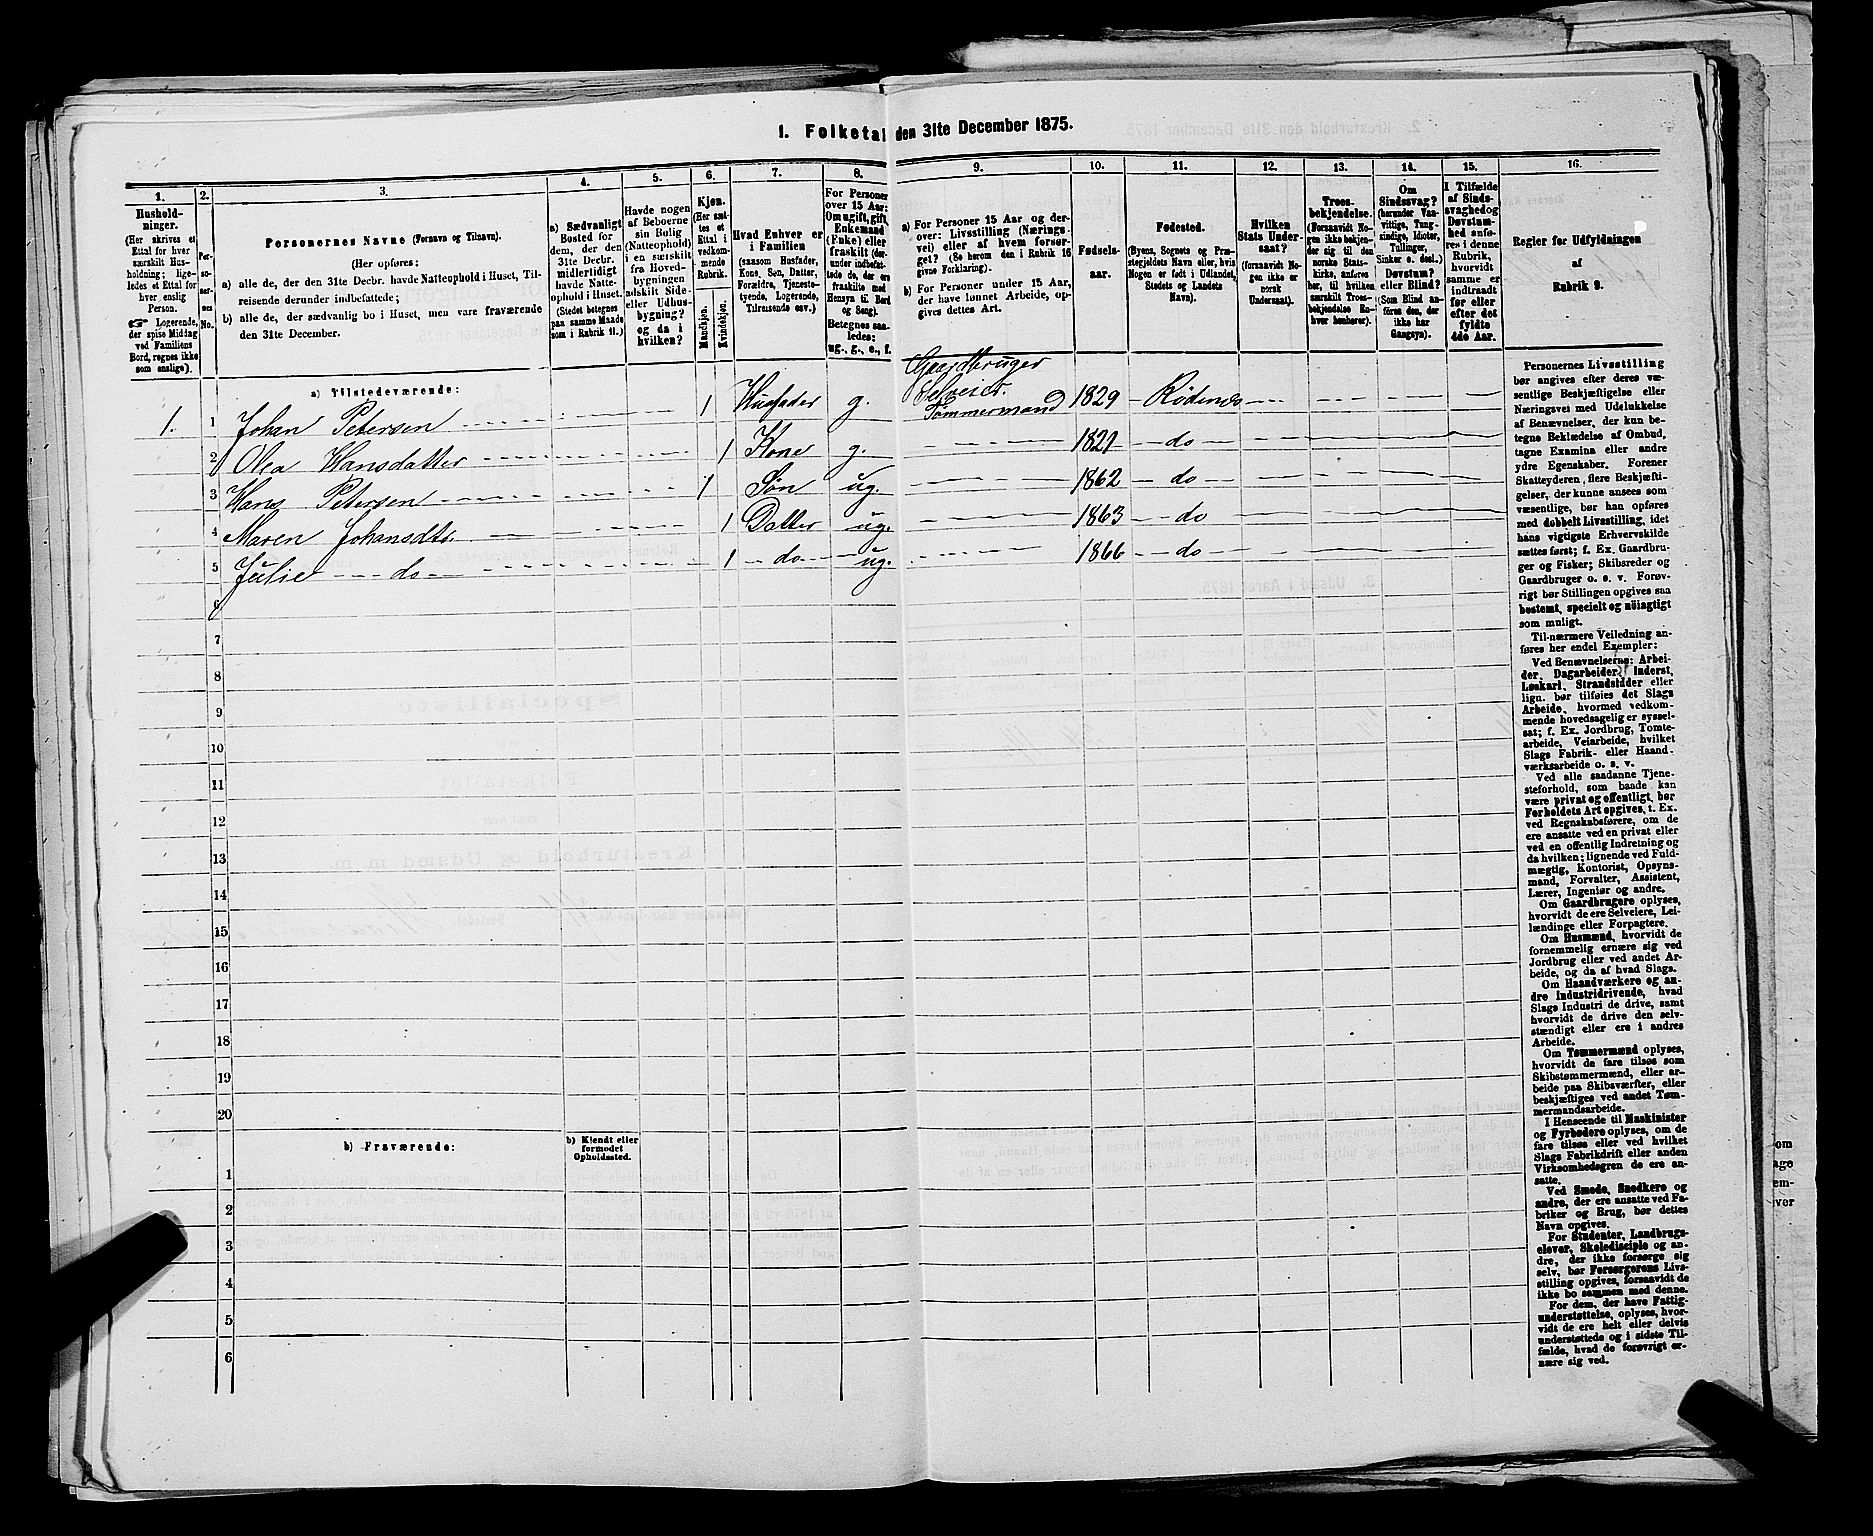 1. Folketal den 31te December 1875.
1.
Hushold-
ninger.
(Her skrives et
Ettal for hver
særskilt Hus-
holdning; lige-
ledes et Ettal for
hver enslig
Person.
Logerende,
der spise Middag
ved Familiens
Bord, regnes ikke
som enslige).
2.
Per-
so-
ner-
nes
No.
3.
Personernes Navne (Fornavn og Tilnavn).
(Her opføres:
a) alle de, der den 31te Decbr. havde Natteophold i Huset, Til-
reisende derunder indbefattede;
b) alle de, der sædvanlig bo i Huset, men vare fraværende
den 31te December.
4.
a) Sædvanligt
Bosted for
dem, der den
31te Decbr.
midlertidigt
havde Natte-
ophold i Huset.
(Stedet betegnes
paa samme Maade
som i Rubrik 11.)
5.
Havde nogen
af Beboerne
sin Bolig
(Natteophold)
i en særskilt
fra Hoved-
bygningen
adskilt Side-
eller Udhus-
bygning?
og da i
hvilken?
6.
Kjøn.
(Her sæt-
tes et
Ettal i
vedkom-
mende
Rubrik.
Mandkjøn.
Kvindekjøn.
7.
Hvad Enhver er
i Familien
(saasom Husfader,
Kone, Søn, Datter,
Forældre, Tjeneste-
tyende, Logerende,
Tilreisende osv.)
8.
For Personer
over 15 Aar:
Om ugift, gift,
Enkemand
(Enke) eller
fraskilt (der-
under indbefat-
tede de, der ere
fraskilte med
Hensyn til Bord
og Seng).
Betegnes saa-
ledes:
ug., g., e., f.
9.
a) For Personer 15 Aar og der-
over: Livsstilling (Nærings-
vei) eller af hvem forsør-
get? (Se herom den i Rubrik 16
givne Forklaring).
b) For Personer under 15 Aar,
der have lønnet Arbeide, op-
gives dettes Art.
10.
Fødsels-
aar.
11.
Fødested.
(Byens, Sognets og Præ-
stegjeldets Navn eller, hvis
Nogen er født i Udlandet,
Stedets og Landets
Navn).
12.
Hvilken
Stats Under-
saat?
(forsaavidt No-
gen ikke er
norsk
Undersaat).
13.
Troes-
bekjendelse.
(Forsaavidt No-
gen ikke bekjen-
der sig til den
norske Stats-
kirke, anføres
her, til hvilken
særskilt Troes-
bekjendelse En-
hver henhører).
14.
Om
Sindssvag?
(herunder Van-
vittige, Tung-
sindige, Idioter,
Tullinger,
Sinker o. desl.)
Døvstum?
eller Blind?
(Som Blind an-
føres den, der
ikke har
Gangsyn).
15.
I Tilfælde
af Sinds-
svaghed og
Døvstum-
hed anfø-
res i denne
Rubrik,
hvorvidt
samme er
indtraadt
før eller
efter det
fyldte
4de Aar.
16.
Regler for Udfyldningen
af
Rubrik 9.
a) Tilstedeværende:
1. 1 Johan Petersen 1 Husfader g. Gaardbruger Selveier. Tømmermand 1829 Rødenes
2 Olea Hansdatter 1 Kone g. 1821 do
3 Hans Petersen 1 Søn ug. 1862 do
4 Maren Johansdtr 1 Datter ug. 1863 do
5 Julie do 1 do ug. 1866 do
6
7
8
9
10
11
12
13
14
15
16
17
18
19
20
b) Fraværende:
b) Kjendt eller
formodet
Opholdssted.
1
2
3
4
5
6
Personernes Livsstilling
bør angives efter deres væ-
sentlige Beskjæftigelse eller
Næringsvei med Udelukkelse
af Benævnelser, der kun be-
tegne Beklædelse af Ombud,
tagne Examina eller andre
ydre Egenskaber. Forener
Skatteyderen flere Beskjæfti-
gelser, der kunne ansees som
væsentlige, bør han opføres
med dobbelt Livsstilling, idet
hans vigtigste Erhvervskilde
sættes først; f. Ex. Gaardbru-
ger og Fisker; Skibsreder og
Gaardbruger o. s. v. Forøv-
rigt bør Stillingen opgives saa
bestemt, specielt og nöiagtigt
som muligt.
Til nærmere Veiledning an-
føres her endel Exempler:
Ved Benævnelserne: Arbei-
der, Dagarbeider, Inderst,
Løskarl, Strandsidder eller
lign. bør tilføies det Slags
Arbeide, hvormed vedkom-
mende hovedsagelig er syssel-
sat; f. Ex. Jordbrug, Tomte-
arbeide, Veiarbeide, hvilket
Slags Fabrik- eller Haand-
værksarbeide o. s. v.
Ved alle saadanne Tjene-
steforhold, som baade kan
være privat og offentligt, bør
Forholdets Art opgives, t. Ex.
ved Regnskabsførere, om de
ere ansatte ved en privat eller
ved en offentlig Indretning og
da hvilken; lignende ved Fuld-
mægtig, Kontorist, Opsyns-
mand, Forvalter, Assistent,
Lærer, Ingeniør og andre.
Om Gaardbrugere oplyses,
hvorvidt de ere Selveiere, Lei-
lændinge eller Forpagtere.
Om Husmænd, hvorvidt de
fornemmelig ernære sig ved
Jordbrug eller ved andet Ar-
beide, og da af hvad Slags.
Om Haandværkere og an-
dre industridrivende, hvad
Slags Industri de drive, samt
hvorvidt de drive den selv-
stændigt eller ere i andres
Arbeide.
Om Tømmermænd oplyses,
hvorvidt de fare tilsøs som
Skibstømmermænd, eller ar-
beide paa Skibsværfter, eller
beskjæftiges ved andet Tøm-
mermandsarbeide.
I Henseende til Maskinister
og Fyrbødere oplyses, om de
fare tilsøs eller ved hvilket
Slags Fabrikdrift eller anden
Virksomhedsgren de ere an-
satte.
Ved Smede, Snedkere og
andre, der ere ansatte ved Fa-
briker og Brug, bør dettes
Navn opgives.
For Studenter, Landbrugs-
elever, Skoledisciple og an-
dre, der ikke forsørge sig
selv, bør Forsørgerens Livs-
stilling opgives, forsaavidt de
ikke bo sammen med denne.
For dem, der have Fattig-
understøttelse, oplyses, hvor-
vidt de ere helt eller delvis
understøttede og i sidste Til-
fælde, hvad de forøvrigt er-
nære sig ved.